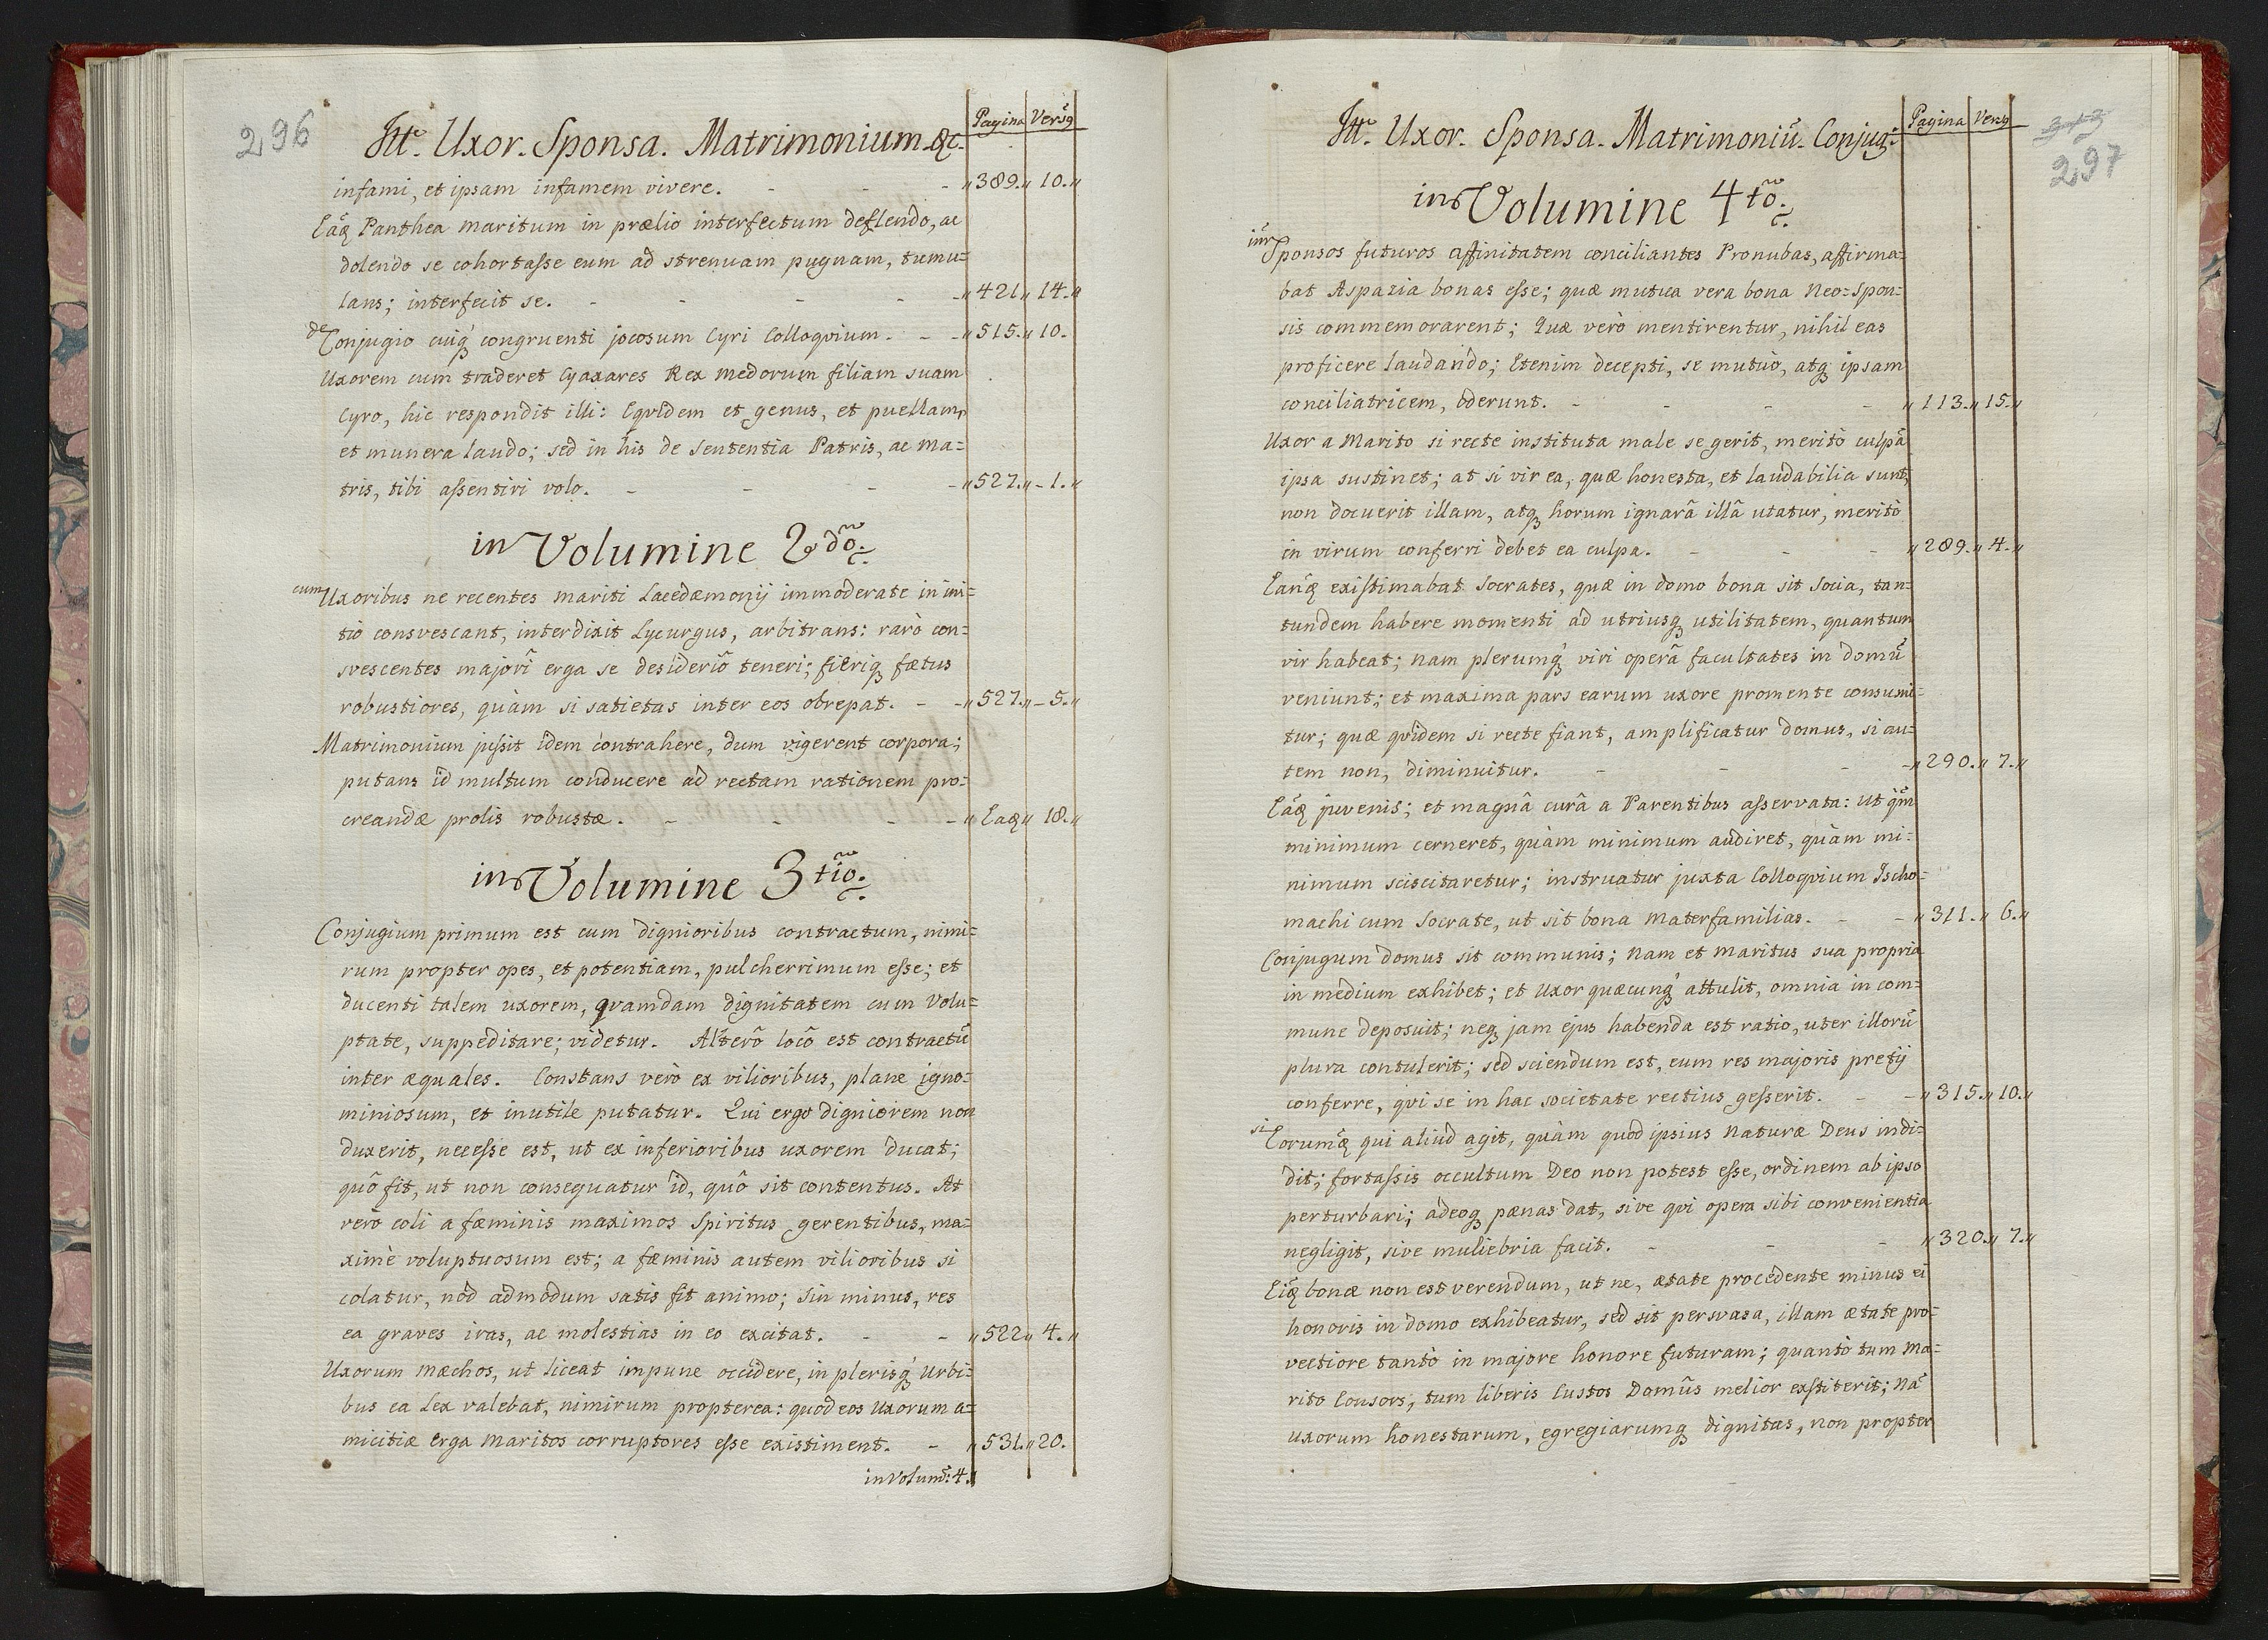 296
Itt. Uxor. Sponsa. Matrimonium &c. Pagina Versq
infami, et ipsam infamem vivere. - - - „389.„ 10.„
Eáq Panthea maritum in prælio interfectum deflendo, ac
dolendo se cohortasse eum ad strenuam pugnam, tumu=
lans; interfecit se. - - - - „421.„ 14.„
de Conjugio cuiq́ congruenti jocosum Cyri Colloqvium. - - „515.„ 10.
Uxorem cum traderet Cyaxares Rex medorum filiam suam
Cyro, hic respondit illi: Eqvidem et genus, et puellam,
et munera laudo; sed in his de sententia Patris, ac ma=
tris, tibi assentiri volo. - - - - „527.„ - 1.„
in Volumine 2do.
cum Uxoribus ne recentes mariti Lacedæmonij immoderate in ini=
tiô consvescant, interdixit Lycurgus, arbitrans: rarò con=
svescentes majorî erga se desideriô teneri; fieriq fœtus
robustiores, quàm si satietas inter eos obrepat. - - „527.„ - 5.„
Matrimonium jussit idem contrahere, dum vigerent corpora;
putans id multum conducere ad rectam rationem pro=
creandæ prolis robustæ. - - - - „Eaq„ 18.„
in Volumine 3tio.
Conjugium primum est cum dignioribus contractum, nimi=
rum propter opes, et potentiam, pulcherrimum esse; et
ducenti talem uxorem, qvamdam dignitatem cum volu=
ptate, suppeditare; videtur. Alterô locô est contractũ
inter æquales. Constans verò ex vilioribus, plane igno=
miniosum, et inutile putatur. Qui ergo digniorem non
duxerit, necesse est, ut ex inferioribus uxorem ducat;
quô fit, ut non consequatur id, quô sit contentus. At
verò coli a fæminis maximos Spiritus gerentibus, ma=
ximè voluptuosum est; a fæminis autem vilioribus si
colatur, nôd admodum satis fit animo; sin minus, res
ea graves iras, ac molestias in eo excitat. - - „522„ 4.„
Uxorum mæchos, ut liceat impune occidere, in plerisq́ Urbi=
bus ea Lex valebat, nimirum propterea: quod eos Uxorum a=
micitiæ erga maritos corruptores esse existiment. - „531.„ 20.
in Volumẽ: 4.
313
297
Itt. Uxor. Sponsa. Matrimoniũ. Conjug: Pagina Versq
in Volumine 4to.
inr Sponsos futuros affinitatem conciliantes Pronubas, affirma=
bat Aspazia bonas esse; quæ mutua vera bona Neo=Spon=
sis commemorarent; Quæ verò mentirentur, nihil eas
proficere laudando; Etenim decepti, se mutuò, atq ipsam
conciliatricem, oderunt. - - - - „113.„ 15.„
Uxor a Marito si recte instituta male se gerit, meritò culpã
ipsa sustinet; at si vir ea, quæ honesta, et laudabilia sunt,
non docuerit illam, atq horum ignarâ illâ utatur, meritò
in virum conferri debet ea culpa. - - - „289.„ 4.„
Eanq́ existimabat Socrates, quæ in domo bona sit Socia, tan=
tundem habere momenti ad utriusq utilitatem, quantum
vir habeat; nam plerumq́ viri operâ facultates in domũ
veniunt; et maxima pars earum uxore promente consumi=
tur; quæ qvidem si recte fiant, amplificatur domus, si au=
tem non, diminuitur. - - - - „290.„ 7.„
Eáq juvenis; et magnâ curâ a Parentibus asservata: ut qm̃
minimum cerneret, quàm minimum audiret, quàm mi=
nimum sciscitaretur; instruatur juxta Colloqvium Ischo=
machi cum Socrate, ut sit bona materfamilias. - - „311.„ 6.„
Conjugum domus sit communis; nam et maritus sua propria
in medium exhibet; et uxor quæcunq́ attulit, omnia in com=
mune deposuit; neq jam ejus habenda est ratio, uter illorũ
plura contulerit; sed sciendum est, eum res majoris pretij
conferre, qvi se in hac societate rectius gesserit. - - „315.„ 10.„
si Eorumq́ qui aliud agit, quàm quod ipsius naturæ Deus indi=
dit; fortassis occultum Deo non potest esse, ordinem ab ipso
perturbari; adeoq pænas dat, sive qvi opera sibi convenientia
negligit, sive muliebria facit. - - - „320.„ 7.„
Eiq́ bonæ non est verendum, ut ne, ætate procedente minus ei
honoris in domo exhibeatur, sed sit persvasa, illam ætate pro=
vectiore tantò in majore honore futuram; quantò tum Ma=
rito Consors, tum liberis Custos Domûs melior exstiterit; Nã
uxorum honestarum, egregiarumq dignitas, non propter